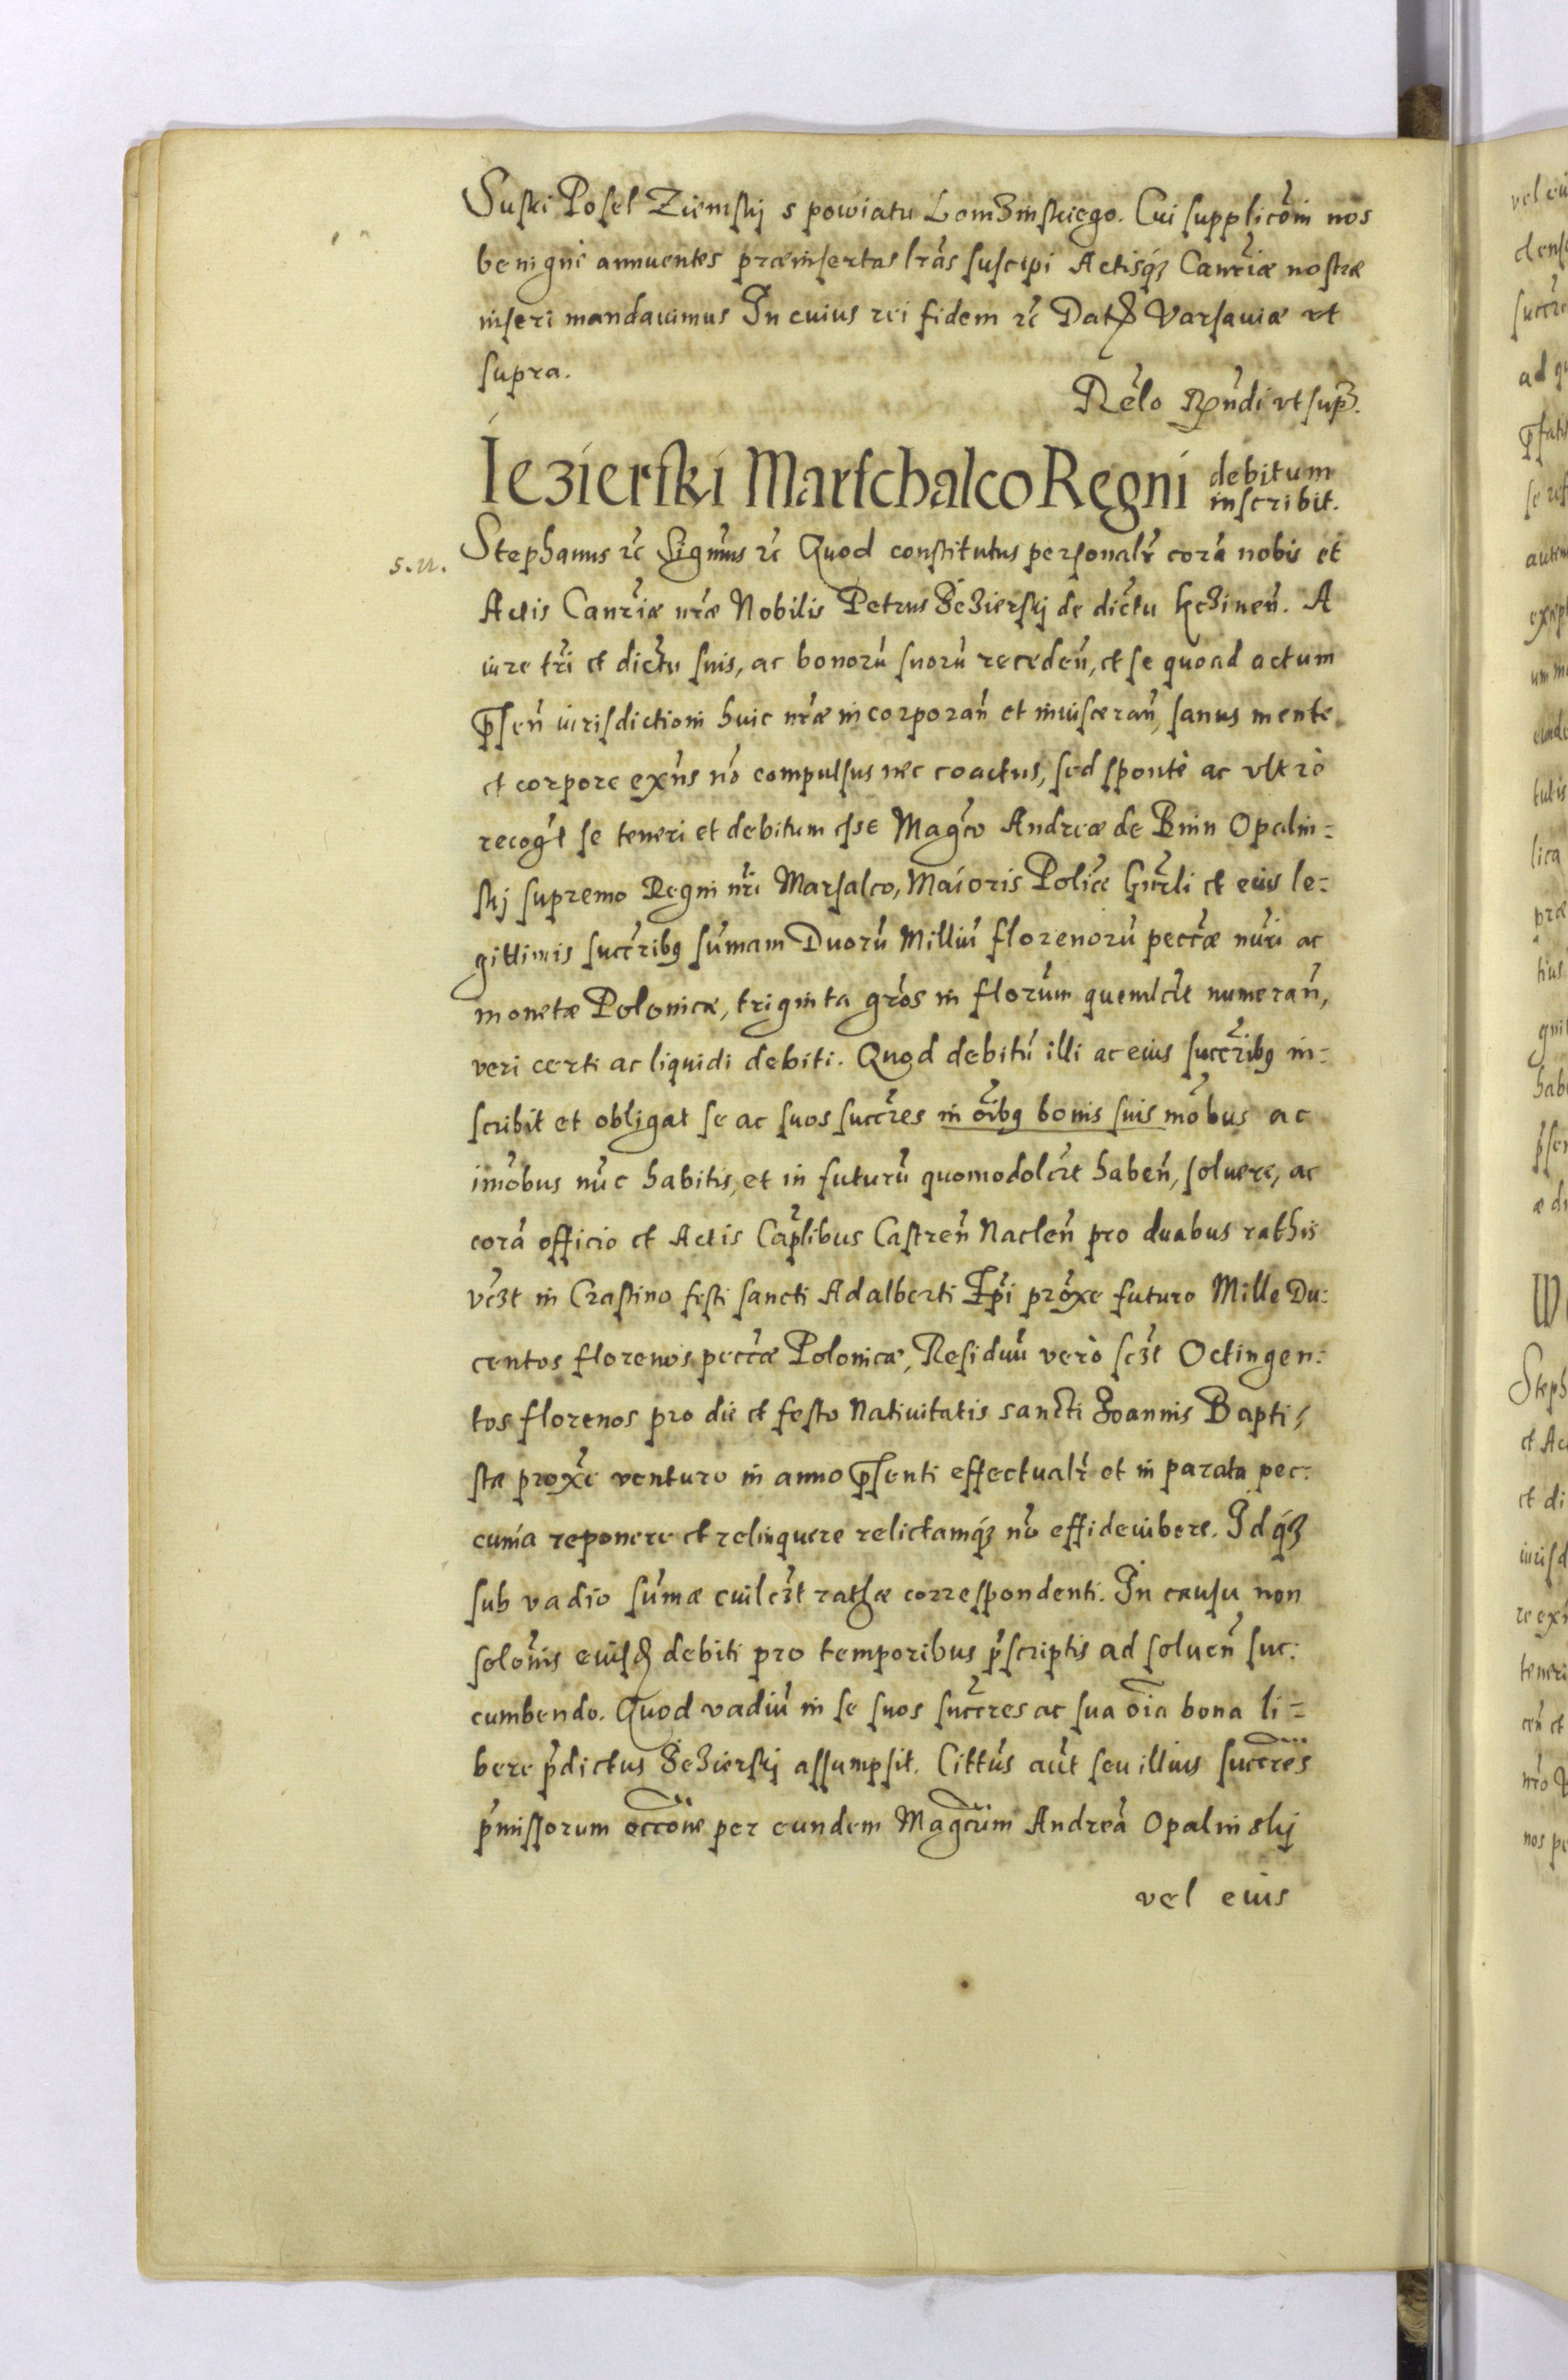 Suski Posel Ziemskj s powiatu Lomzinskiego. Cui supplicõni nos
benignè annuentes præinsertas lrãs suscipi Actisq́ꝫ Canriæ nostræ
inseri mandauimus In cuius rei fidem ꝛc Dat. Varsauiæ vt
supra.
Relo Rndi vt sup.
Iezierski Marschalco Regni debitum
inscribit.
Stephanus ꝛc Signus ꝛc Quod constitutus personalr corã nobis et
Actis Canriæ nræ Nobilis Petrus Jezierskj de dictu Kczinen. A
iure tri et dictu suis, ac bonorũ suorũ receden, et se quoad actum
p̃sen iurisdictioni huic nræ incorporan et inuisceran, sanus mente
et corpore exns nõ compulsus nec coactus, sed spontè ac vltrò
recogt se teneri et debitum esse Magco Andreæ de Bnin Opalin=
skj supremo Regni nri Marsalco, Maioris Poliæ Gnrli et eius le=
gittimis succribꝯ sũmam Duorũ Milliũ florenorũ peccæ nuri ac
monetæ Polonicæ, triginta gros in florum quemlcet numeran,
veri certi ac liquidi debiti. Quod debitũ illi ac eius succribꝯ in=
scribit et obligat se ac suos succres in oĩbꝯ bonis suis mõbus ac
imõbus nũc habitis, et in futurũ quomodolcet haben, soluere, ac
corã officio et Actis Caplibus Castren Naclen pro duabus rathis
vcꝫt in Crastino festi sancti Adalberti Epi proxe futuro Mille Du=
centos florenos peccæ Polonicæ, Residuũ verò scꝫt Octingen=
tos florenos pro die et festo Natiuitatis sancti Joannis Bapti=
stæ proxè venturo in anno p̃senti effectualr et in parata pec=
cunia reponere et relinquere relictamq́ꝫ nõ effidevibere. Idq́ꝫ
sub vadio sũmæ cuilcꝫt rathæ correspondenti. In causu non
solonis eiusd debiti pro temporibus p̃scriptis ad soluen suc=
cumbendo. Quod vadiũ in se suos succres ac sua oĩa bona li=
bere p̃dictus Jezierskj assumpsit. Cittus aut seu illius succres
p̃missorum occõne per eundem Magcum Andreã Opalinskj
vel eius